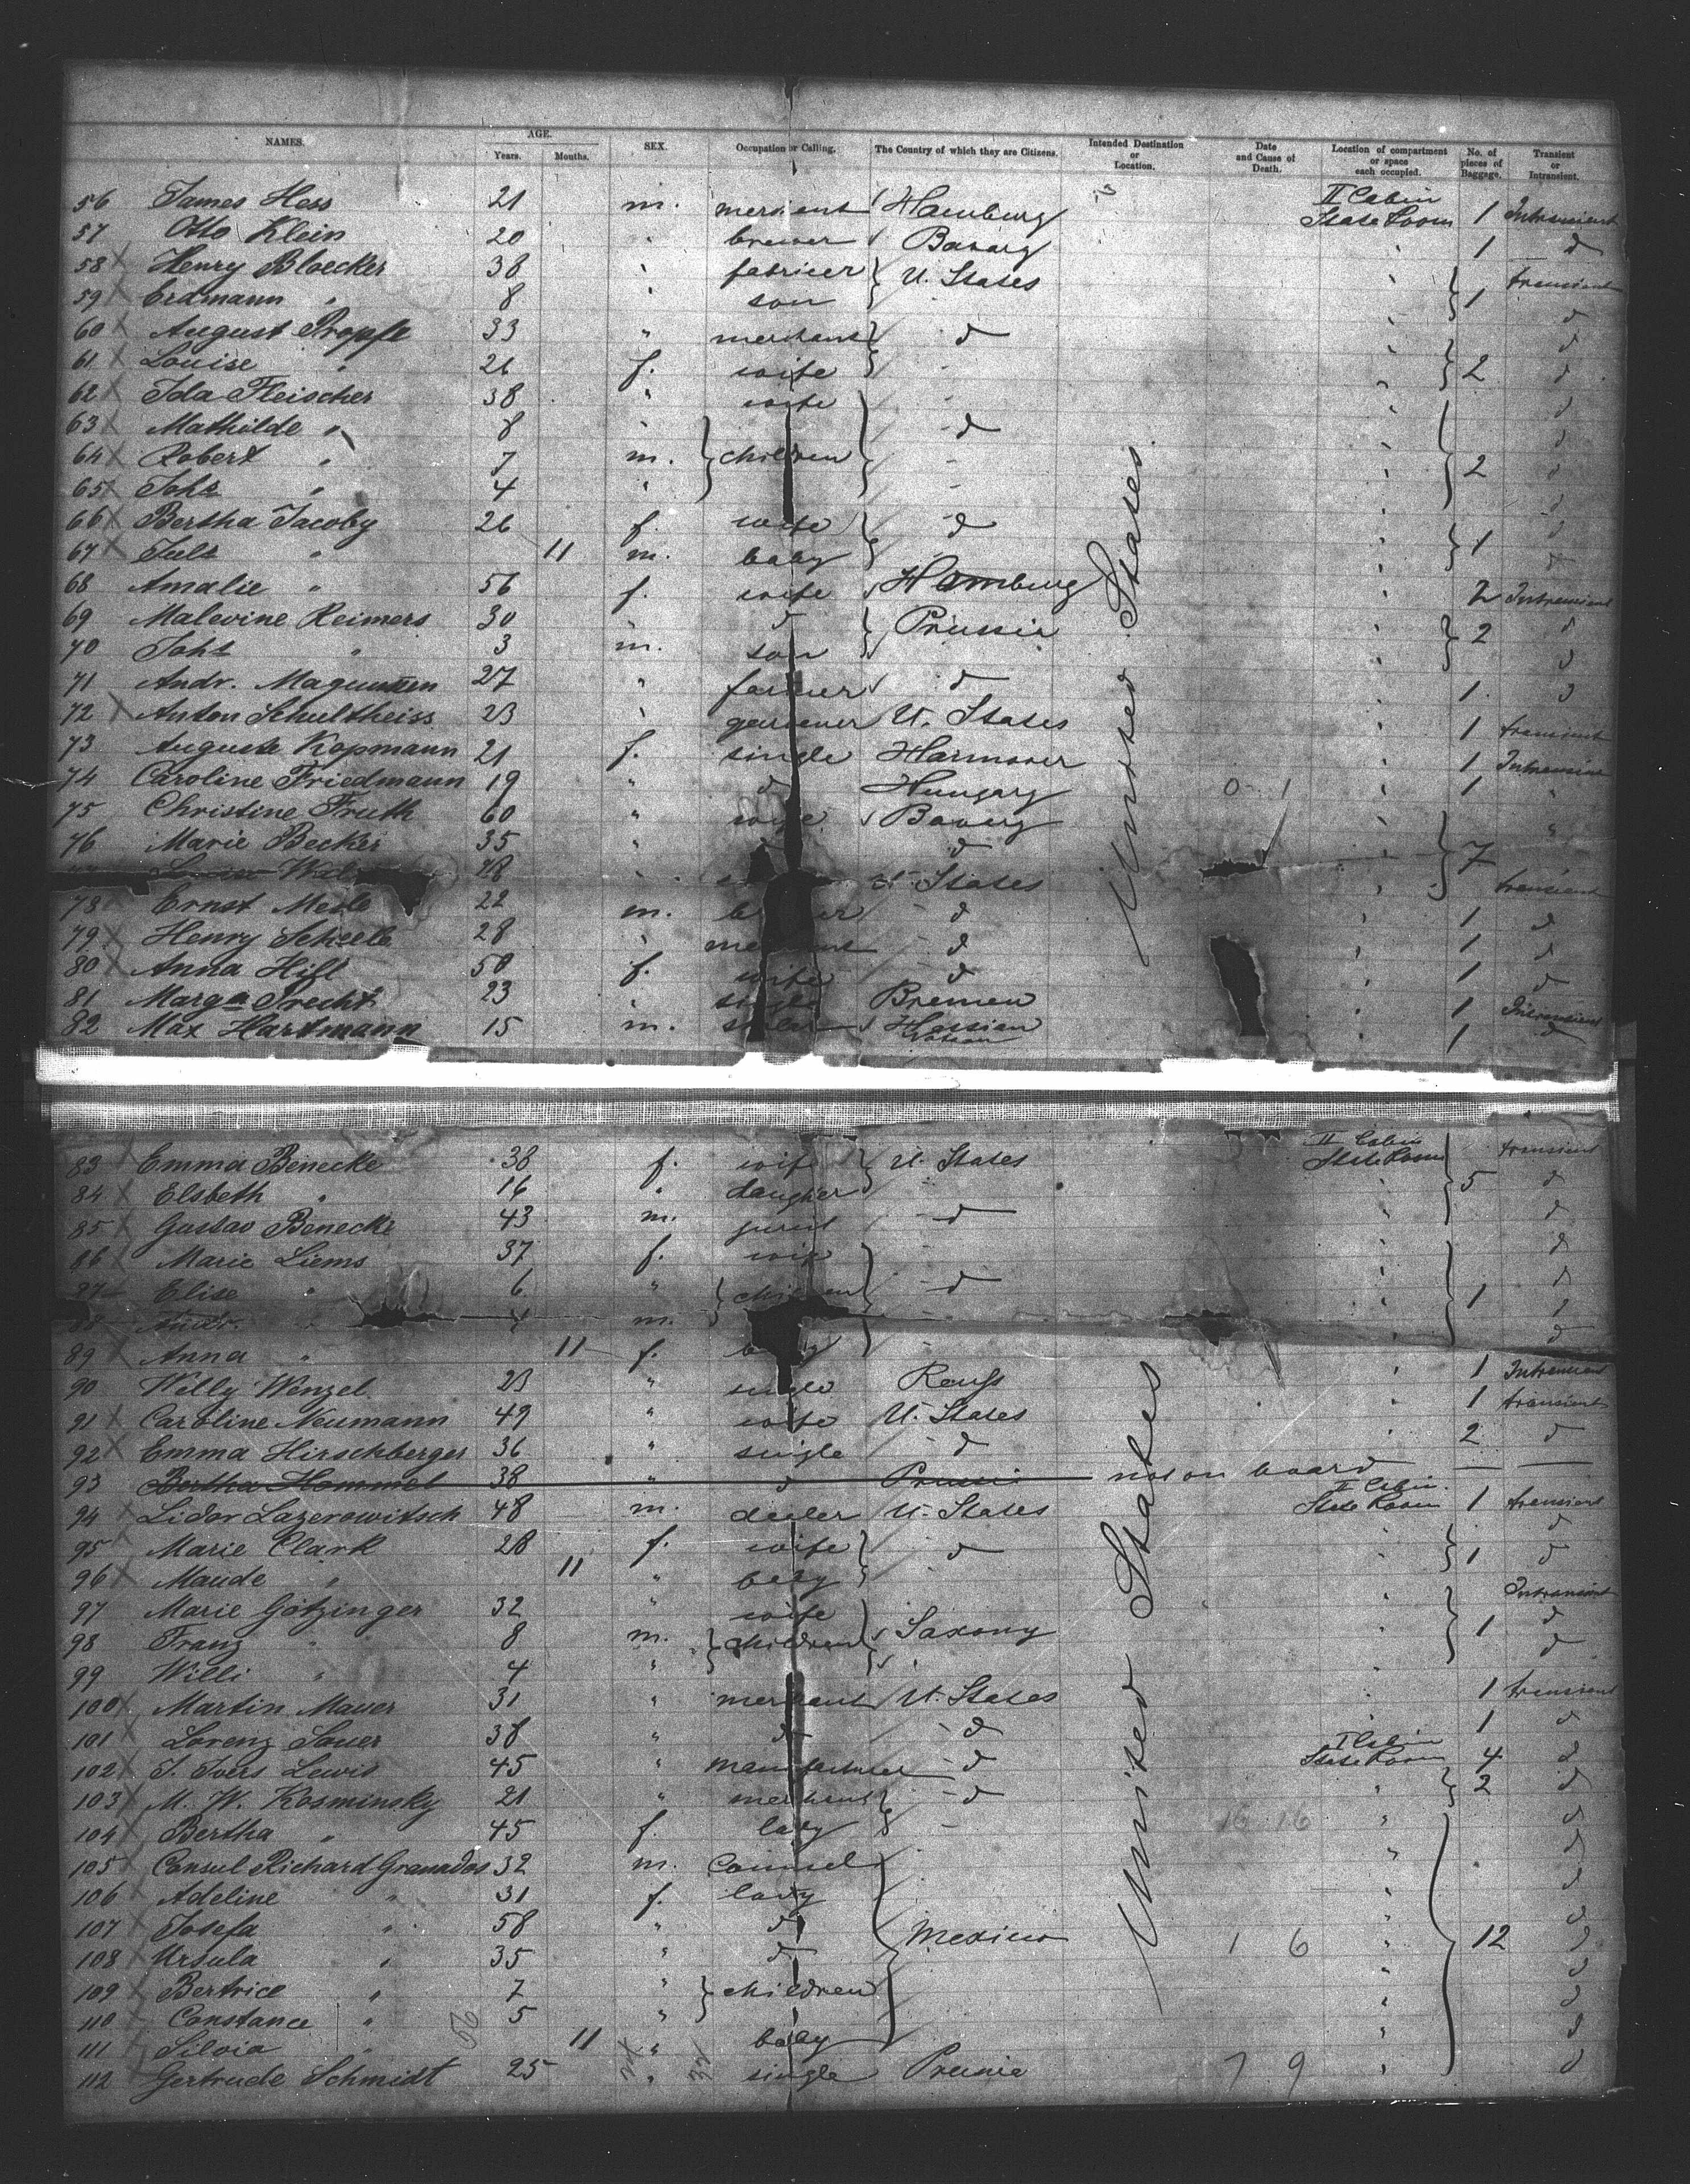 NAMES. AGE. Years. Months. SEX. Occupation or Calling. The Country of which they are Citizens. Intended Destination or Location. Date and Cause of Death. Location of compartment or space each occupied. No. of pieces of Baggage. Transient or Intransient.
56 James Hess 21 m. merchant Hamburg II Cabin State Room 1 Intransient
57 Otto Klein 20 " brewer Bavary " 1 d
58 X Henry Bloecker 38 " U. States " transient
59 X Erdmann " 8 " son " 1 d
60 X August Propfe 33 " merchant d " d
61 X Louise " 26 f. wife " 2 d
62 X Ida Fleischer 38 " wife " d
63 X Mathilde " 8 " d " d
64 X Robert " 7 m. children " 2 d
65 X Johs " 4 " " d
66 X Bertha Jacoby 26 f. wife d " d
67 X Juls " 11 m. baby " 1 d
68 Amalie " 56 f. wife Hamburg " 2 Intransient
69 Malevine Reimers 30 " d Prussia " 2 d
70 Johs " 3 m. son " d
71 Andr. Magnussen 27 " farmer d " 1 d
72 X Anton Schultheiss 23 " gardener U. States " 1 transient
73 Auguste Kopmann 21 f. single Hannover " 1 Intransient
74 Caroline Friedmann 19 " d Hungary 0 1 " 1 "
75 Christine Fruth 60 " wife Bavary " "
76 Marie Becker 35 " d " 7
18 U. States " transient
78 Ernst 22 m. d " 1 d
79 X Henry Scheele 28 " merchant d " 1 d
80 X Anna Hifl 50 f. wife d " 1 d
81 Marga Precht 23 " single Bremen " 1 Intransient
82 Max Hartmann 15 m. Hessian " 1 d
United States
83 X Emma Benecke 38 f. wife U. States II Cabin State Room transient
84 X Elsbeth " 16 " daugther " 5 d
85 X Gustav Benecke 43 m. jurist d " d
86 X Marie Liems 37 f. wife " d
87 Elise " 6 " children d " d
88 Andr. " 4 m. " 1 d
89 X Anna " 11 f. baby d
90 Willy Wenzel 23 " single Reuss " 1 Intransient
91 X Caroline Neumann 49 " wife U. States " 1 transient
92 X Emma Hirschberger 36 " single d " 2 d
93 Bertha Hommel 38 " d Prussia not on board
94 X Lidor Lazerowitsch 48 m. dealer U. States II Cabin State Room 1 transient
95 X Marie Clark 28 f. wife d d
96 X Maude " 11 " baby " 1 d
97 Marie Götzinger 32 " wife Intransient
98 Franz " 8 m. children Saxony " 1 d
99 Willi " 4 " d
100 X Martin Mauer 31 " merchant U. States " 1 transient
101 X Lorenz Sauer 38 " d d 1 d
102 X J. Ivers Lewis 45 " manufacturer d I Cabin State Room 4 d
103 X M. W. Kosminsky 21 " merchant d " 2 d
104 X Bertha " 45 f. lady 16 16 " d
105 X Consul Richard Granados 32 m. Counsel " d
106 X Adeline " 31 f. lady " d
107 X Josefa " 58 " d Mexico " d
108 X Ursula " 35 " d 1 6 " 12 d
109 X Bertrice " 7 " children " d
110 Constance " 5 " " d
111 Silvia " 11 " baby " d
112 Gertrude Schmidt 25 " single Prussia 7 9 " d
United States